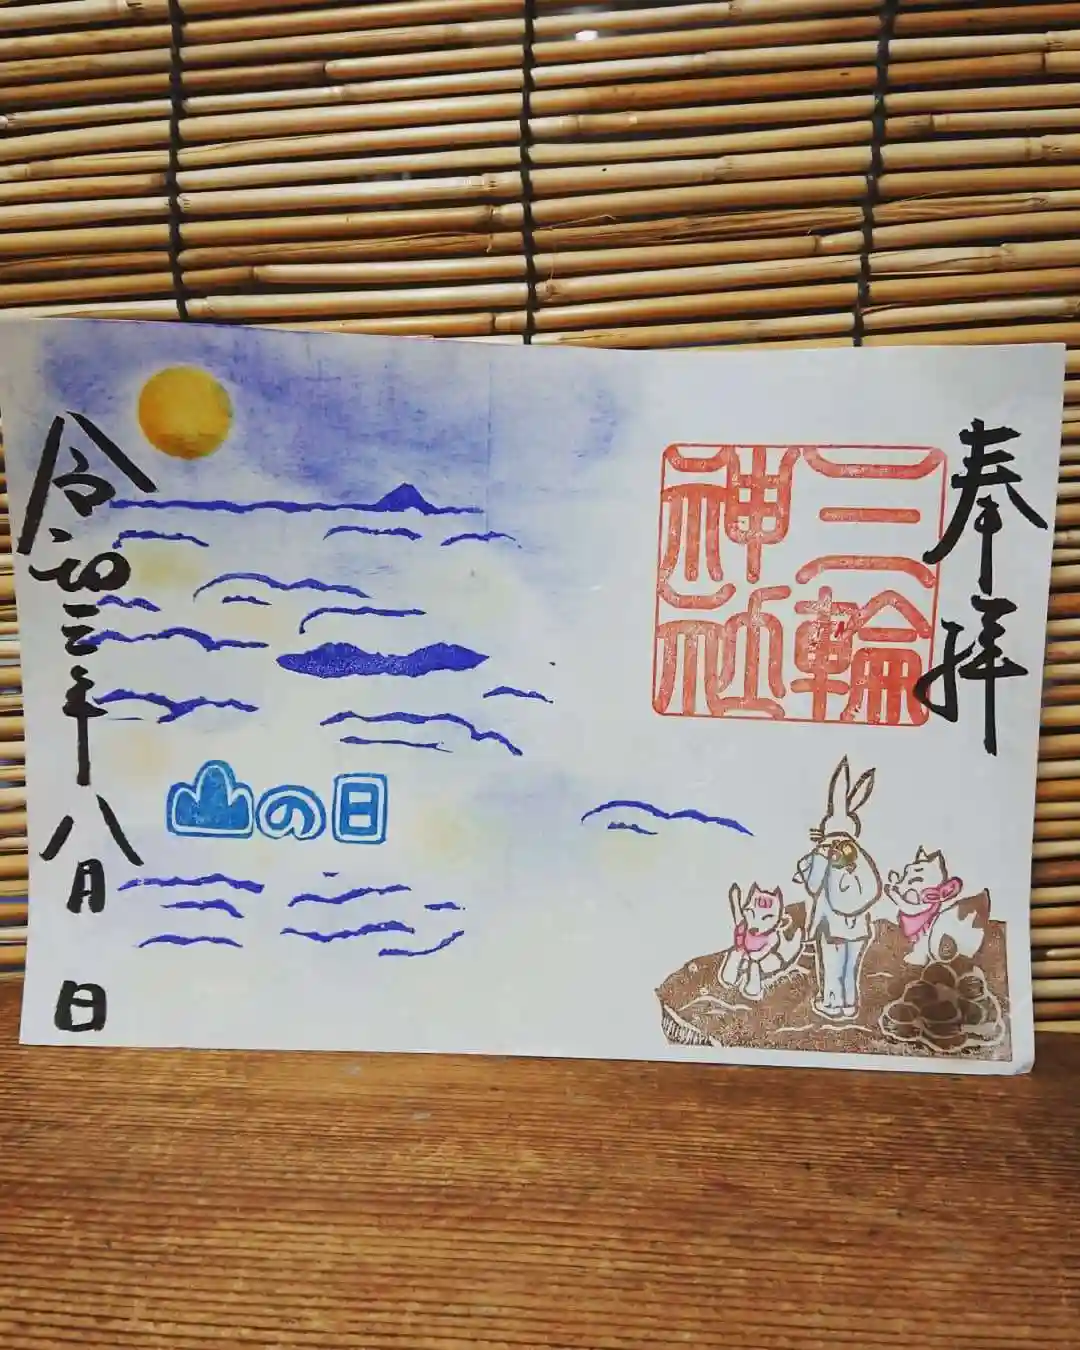 奉拝
三輪
神社
山の日
令和三年八月 日